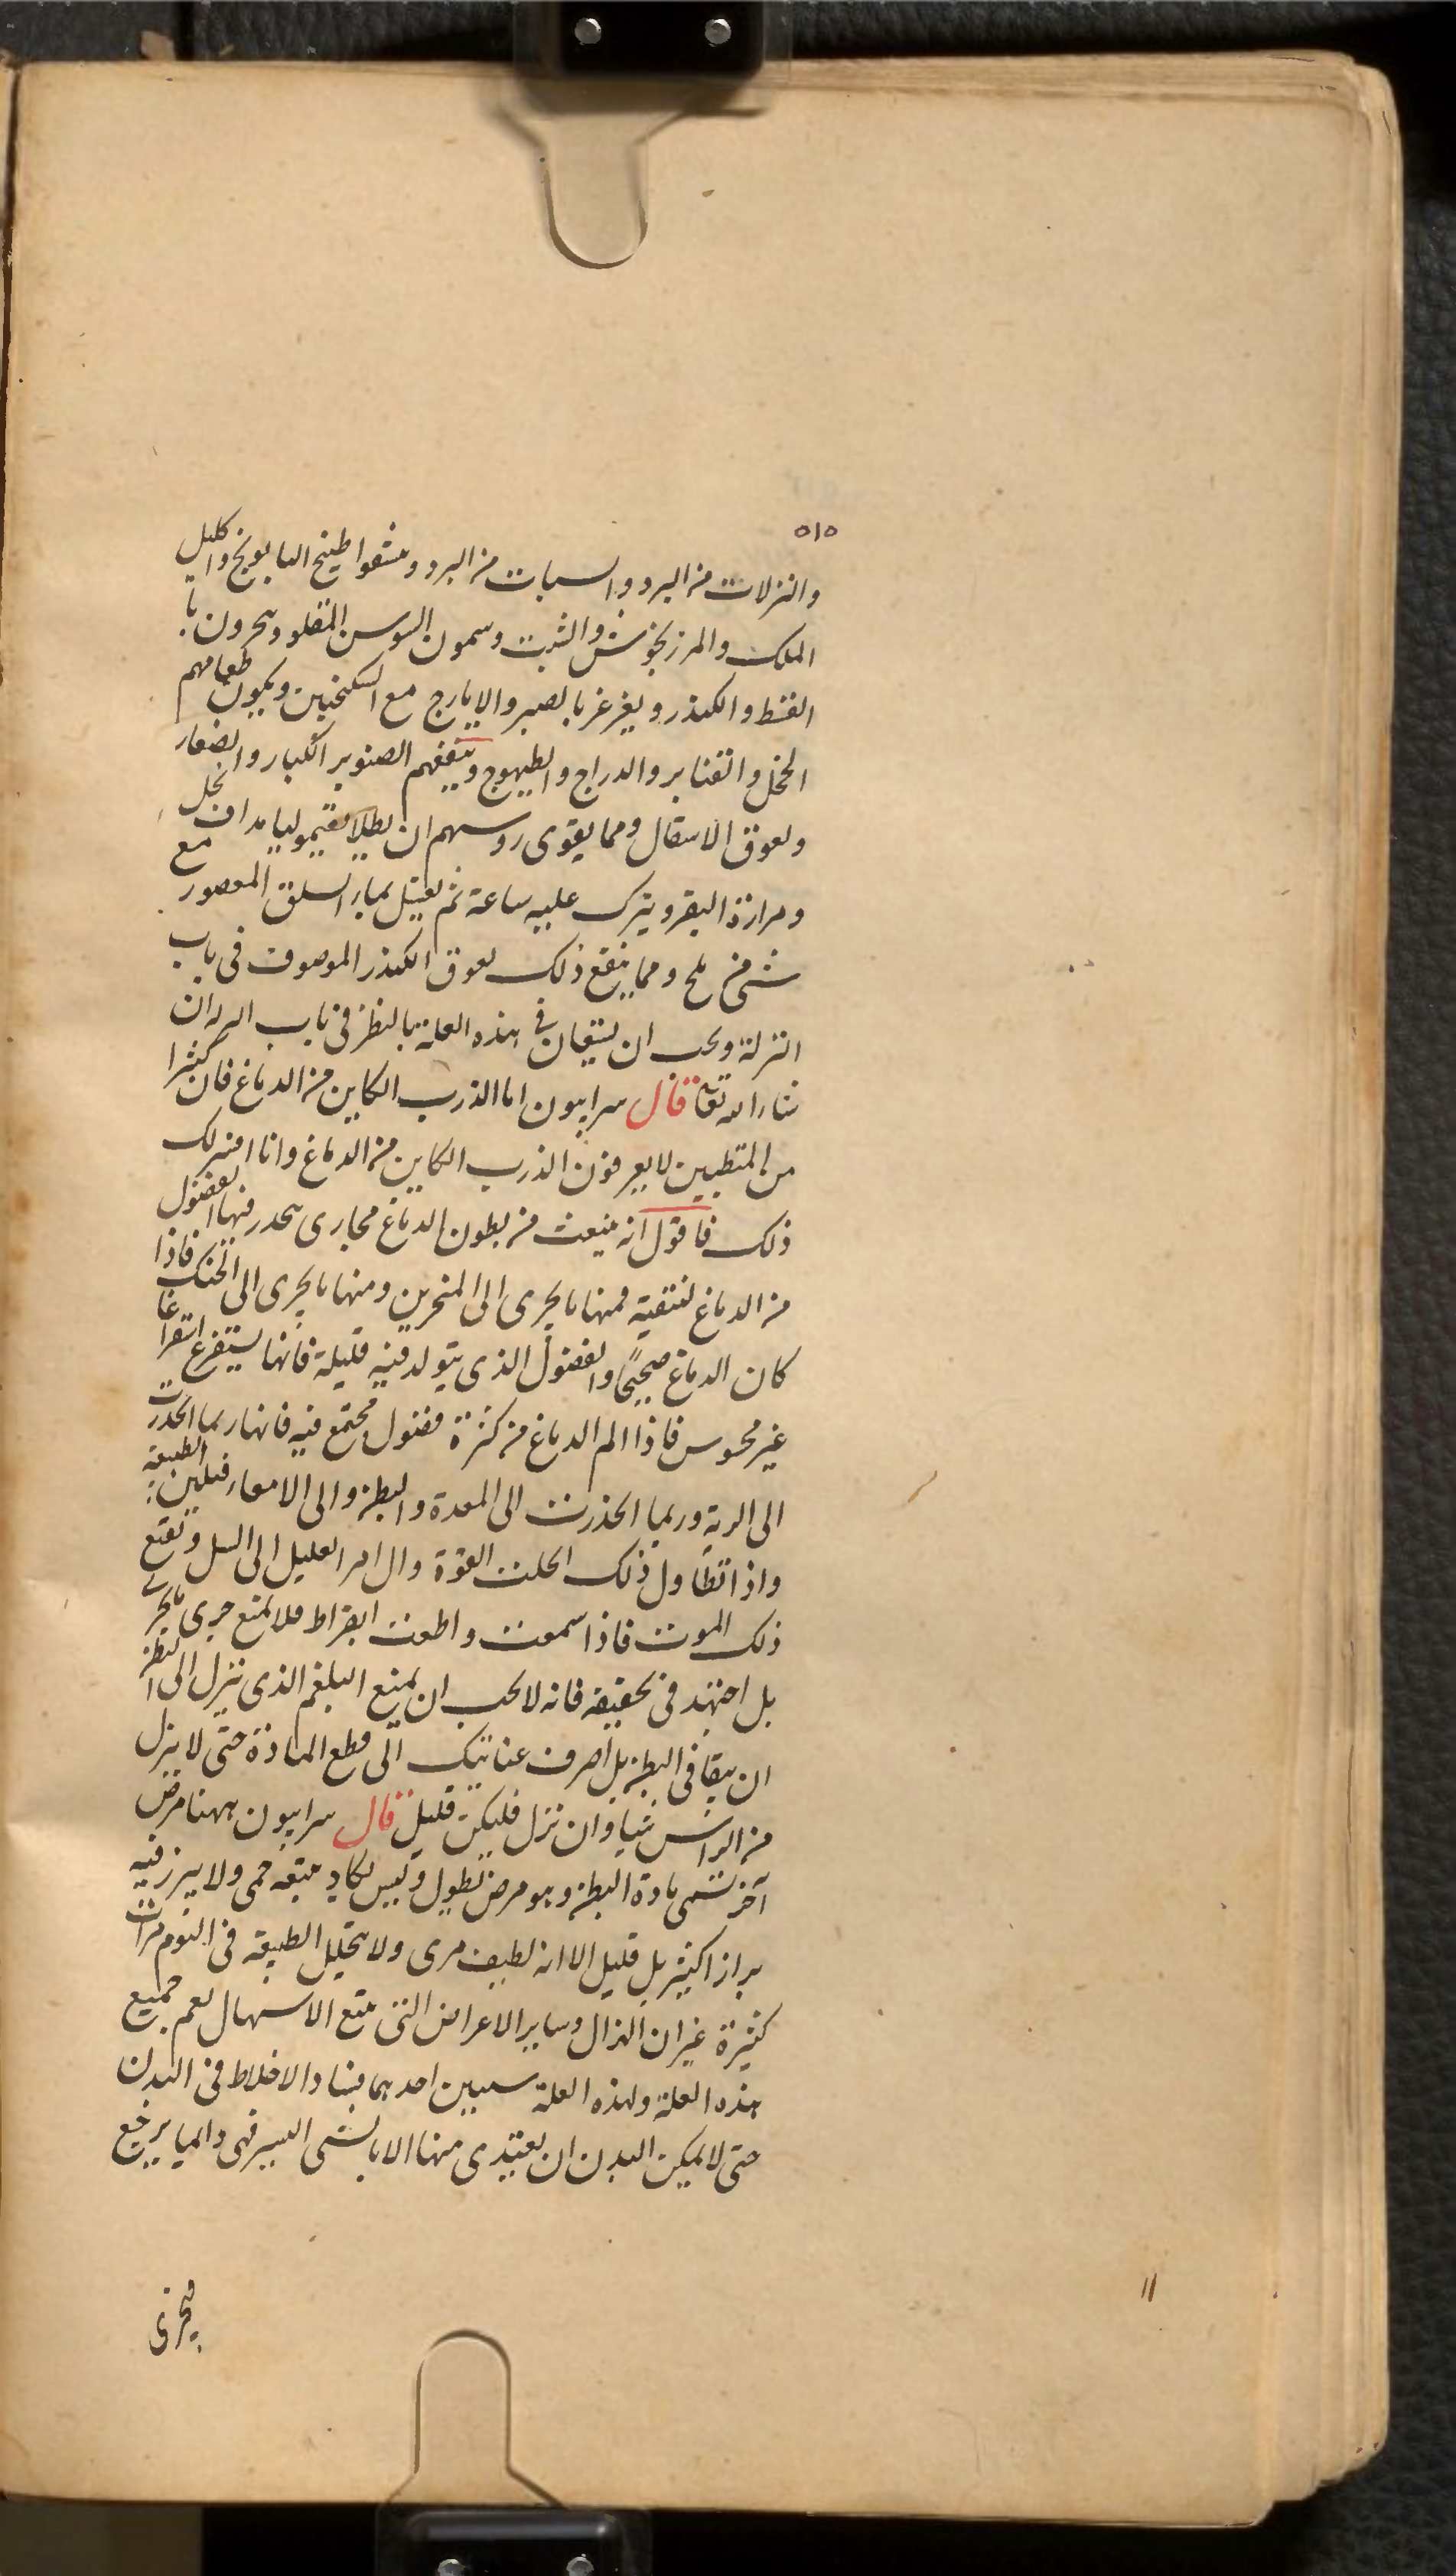 ٥١٥
والنزلات من البرد والسبات من البرد وينشقوا طبيخ البابونج واكليل
الملك والمرزنجوش والشبت ويشمون السوسن المقلو ويبخرون با
القسط والكندر ويغرغر بالصبر والايارج مع السكنجبين ويكون طعامهم
الخل والقنابر والدراج والطيهوج وينفعهم الصنوبر الكبار والصغار
ولعوق الاسقال ومما يقوى روسهم ان يطلا بقيموليا مداف بخل
ومرارة البقر ويترك عليه ساعة ثم يغسل بماء السلق المعصور مع
شى من ملح ومما ينفع ذلك لعوق الكندر الموصوف فى باب
النزلة ويجب ان يستعان فى هذه العلة بالنظر فى باب الربو ان
شاء الله تعا قال سرابيون اما الذرب الكاين من الدماغ فان كثيرا
من المتطببين لا يعرفون الذرب الكاين من الدماغ وانا افسر لك
ذلك فاقول انه ينبعث من بطون الدماغ مجارى ينحدر فيها الفضول
من الدماغ لتنقيته فمنها ما يجرى الى المنخرين ومنها ما يجرى الى الحنك فاذا
كان الدماغ صحيحًا والفضول الذى يتولد فيه قليلة فانها يستفرغ استفراغا
غير محسوس فاذا الم الدماغ من كثرة فضول مجتمع فيه فانها ربما انحدرت
الى الرية وربما انحدرت الى المعدة والبطن والى الامعاء فيلين الطبيعة
واذا تطاول ذلك انحلت القوة وال امر العليل الى السل ويتبع
ذلك الموت فاذا سمعت واطعت ابقراط فلا تمنع جرى ما يجرى
بل اجتهد فى تجفيفه فانه لا يجب ان يمنع البلغم الذى ينزل الى البطن
ان يبقا فى البطن بل اصرف عنايتك الى قطع المادة حتى لا ينزل
من الراس شيا وان نزل فليكن قليل قال سرابيون ههنا مرض
آخر تسمى مادة البطن وهو مرض يطول وليس يكاد يتبعه حمى ولا يبرز فيه
براز اكثير بل قليل الا انه لطيف مرى ولا يتحلل الطبيعة فى اليوم مرات
كثيرة غير ان الهزال وساير الاعراض التى يتبع الاسهال يعم جميع
هذه العلة ولهذه العلة سببين احدهما فساد الاخلاط فى البدن
حتى لا يمكن البدن ان يغتذى منها الا بالشى اليسير فهى دايما يرجع
فيجرى